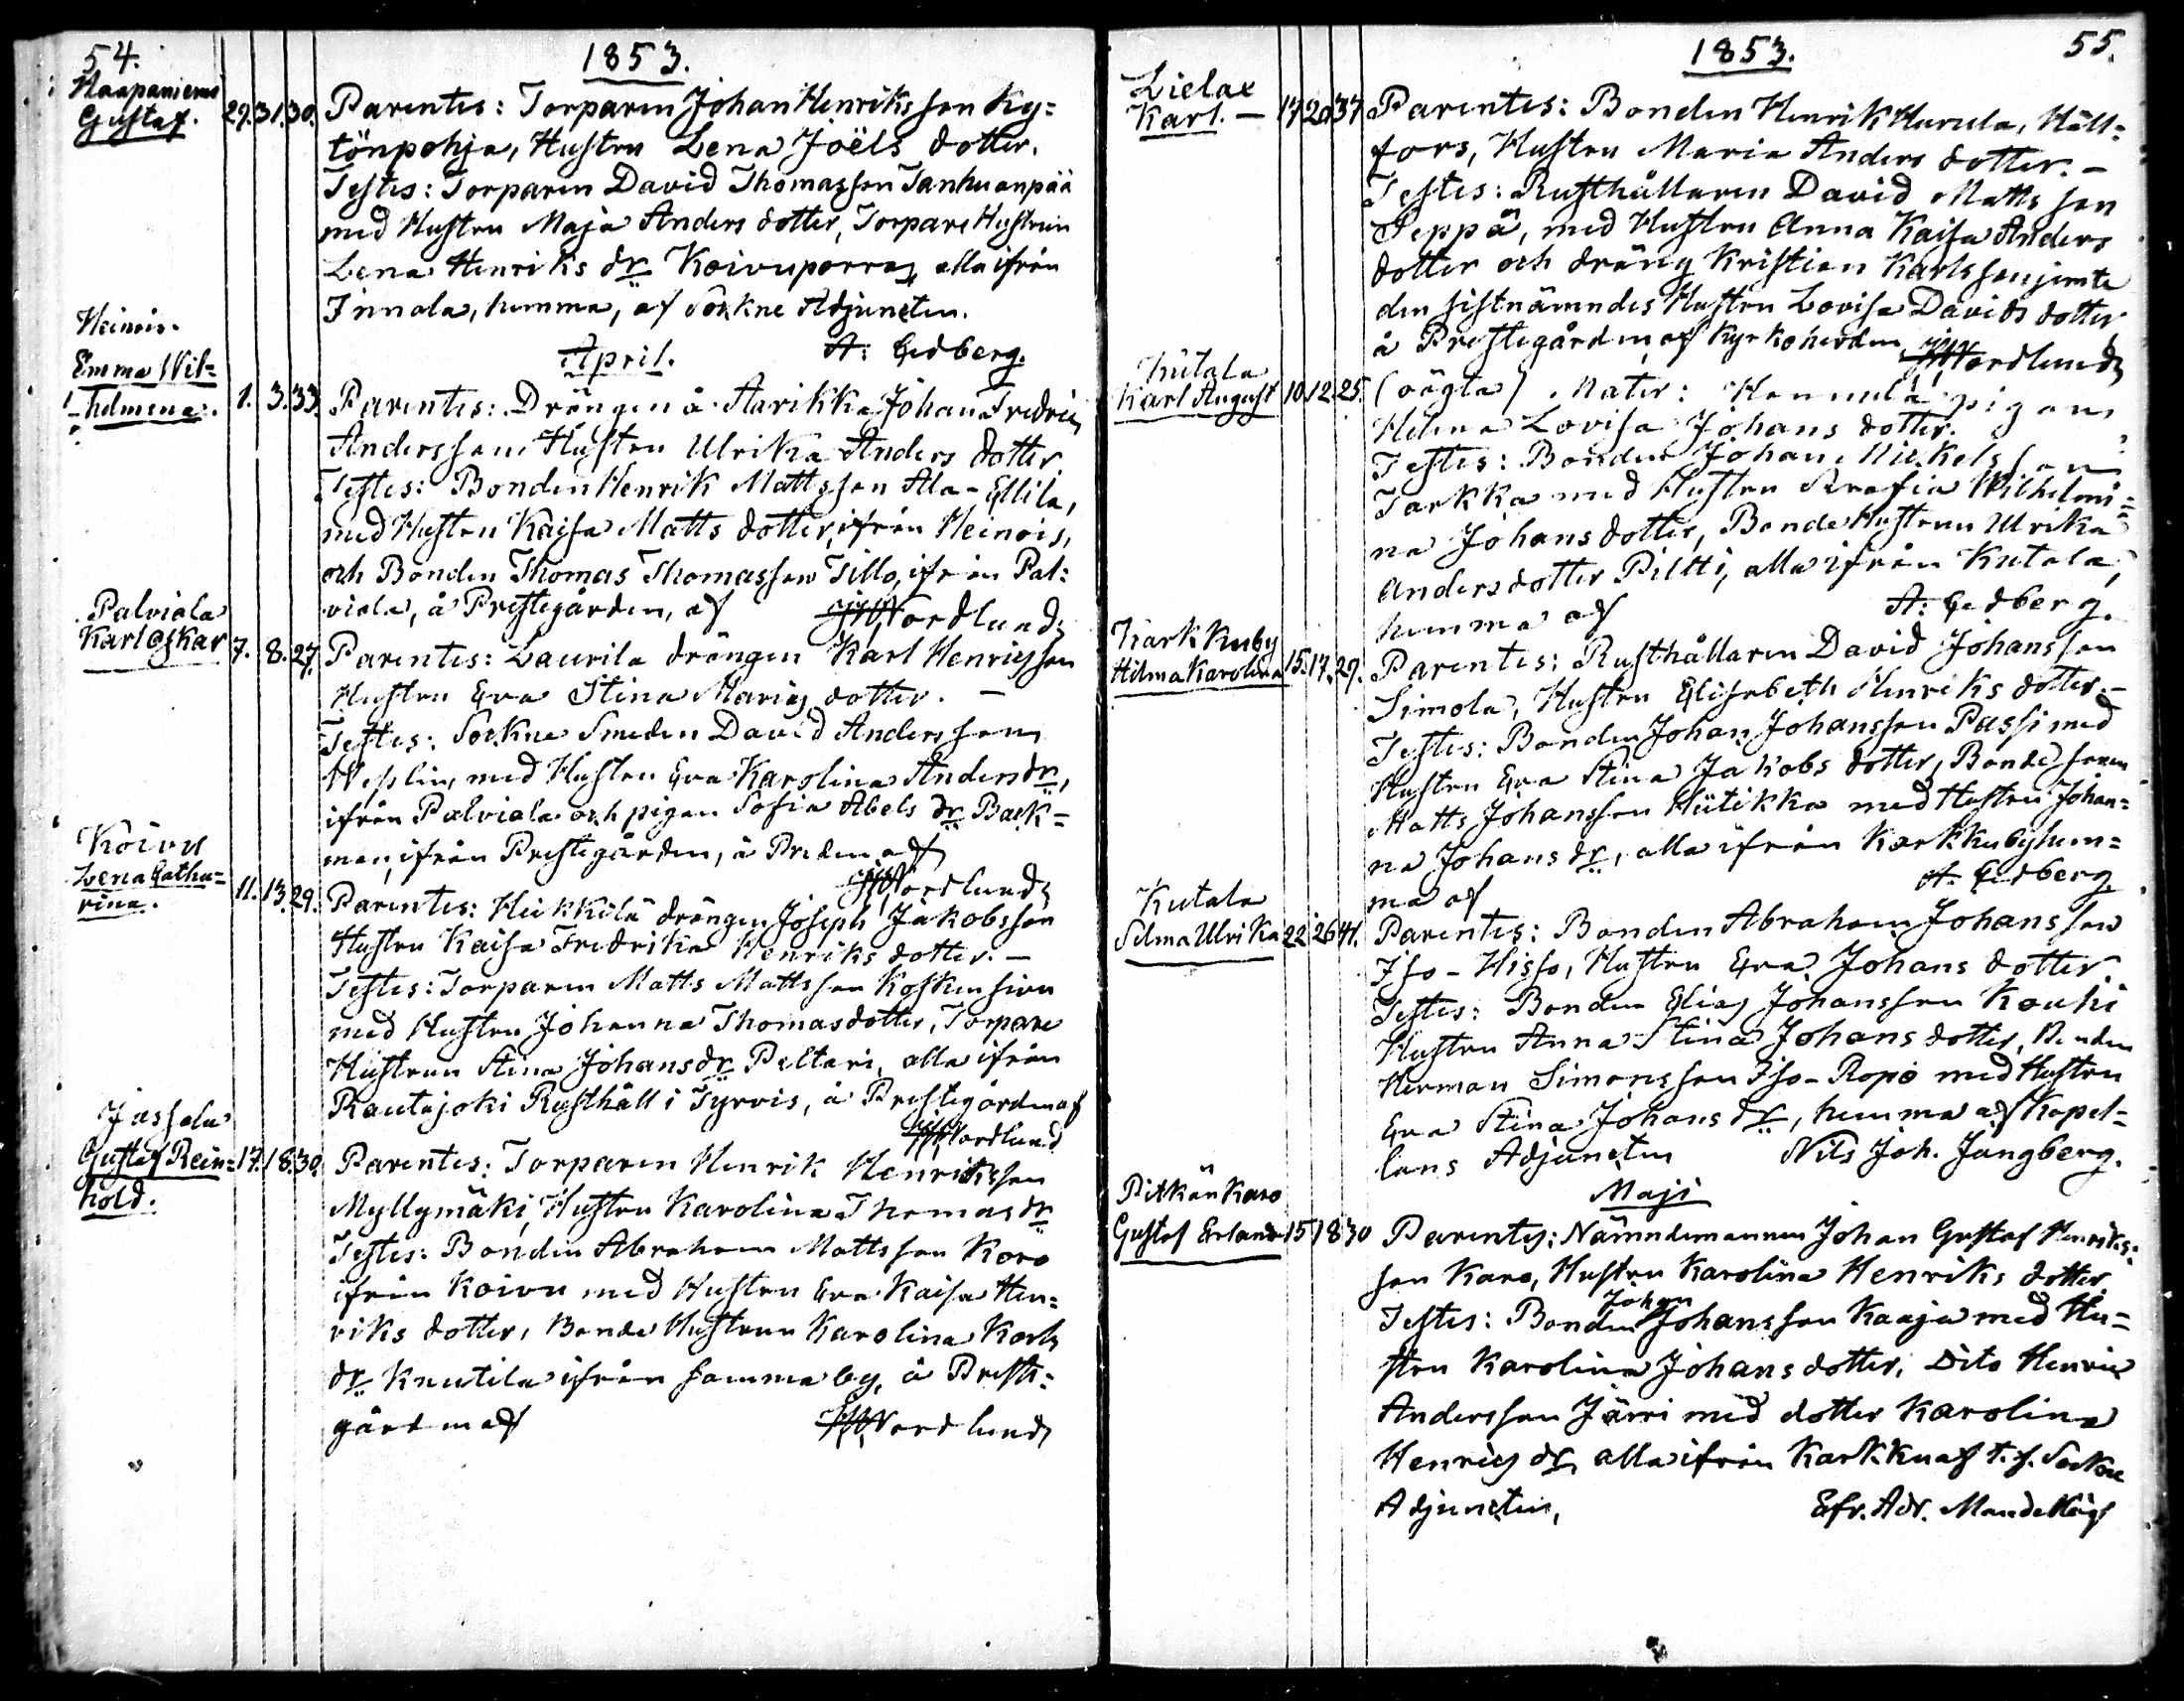 54.
1853.
Haapaniemi
Gustaf. 29. 31. 30. Parentes: Torparen Johan Henriksson Ky=
tönpohja, Hustru Lena Joëls dotter.
Testes: Torparen David Thomasson Tanhuanpää
med Hustru Maja Anders dotter, Torpare Hustrun
Lena Henriks dr Koivuporras, alla ifrån
Innala, hemma, af Sockne Adjuncten.
A: Cedberg.
April.
Heinois.
Emma Wil=
helmina. 1. 3. 33. Parentes: Drängen å Aarikka Johan Fredric
Andersson, Hustru Ulrika Anders dotter
Testes: Bonden Henrik Mattsson Ala-Ellilä,
med Hustru Kaisa Matts dotter, ifrån Heinois,
och Bonden Thomas Thomasson Tillo, ifrån Pal=
viala, å Prestegården, af Nordlund
Palviala
Karl Oskar 7. 8. 27. Parentes: Laurila drängen Karl Henricsson
Hustru Eva Stina Marias dotter. –
Testes: Sockne Smeden David Andersson
Wesslin, med Hustru Eva Karolina Anders dr,
ifrån Palviala och pigan Sofia Abels dr Back=
man, ifrån Prestegården, å Preden af
Nordlund
Koivu
Lena Catha=
rina. 11. 13. 29. Parentes: Heikkilä drängen Joseph Jakobsson
Hustru Kaisa Fredrika Henriks dotter. –
Testes: Torparen Matts Mattsson Koskensivu
med Hustru Johanna Thomasdotter, Torpare
Hustrun Stina Johansdr Peltari, alla ifrån
Rautajoki Rusthåll i Tyrvis, å Prestegården af
Nordlund
Jassala
Gustaf Rein=
hold. 17. 18. 30. Parentes: Torparen Henrik Henriksson
Myllymäki, Hustru Karolina Thomas dr
Testes: Bonden Abraham Mattsson Koro
ifrån Koivu med Hustru Eva Kaisa Hen=
riks dotter, Bonde Hustrun Karolina Karls
dr Knuutila ifrån samma by, å Preste=
gården af Nordlund
55.
1853.
Lielax
Karl. – 17 20 37 Parentes: Bonden Henrik Hurula, Häll=
fors, Hustru Maria Anders dotter. –
Testes: Rusthållaren David Mattsson
Seppä, med Hustru Anna Kaisa Anders
dotter och dräng Kristian Karlsson jemte
den sistnämndes Hustru Lovisa Davids dotter
å Prestegården, af Kyrkoherden Nordlund
Kutala
Karl August 10. 12. 25. (oägta) Mater: Hannula pigan
Helena Lovisa Johans dotter.
Testes: Bonden Johan Mickelsson
Tarkka med Hustru Serafia Wilhelmi=
na Johans dotter, Bonde Hustrun Ulrika
Anders dotter Piltti, alla ifrån Kutala,
hemma af A: Cedberg.
Karkkuby
Hilma Karolina 15. 17. 29. Parentes: Rusthållaren David Johansson
Simola, Hustru Elisabeth Henriks dotter. –
Testes: Bonden Johan Johansson Passi med
Hustru Eva Stina Jakobs dotter, Bonde sonen
Matts Johansson Hiitikko med Hustru Johan=
na Johans dr, alla ifrån Karkkuby hem=
ma af A. Cedberg
Kutala
Selma Ulrika 22 26 41. Parentes: Bonden Abraham Johansson
Iso-Hisso, Hustru Eva Johans dotter.
Testes: Bonden Elias Johansson Kouhi
Hustru Anna Stina Johans dotter, Bonden
Herman Simonsson Iso-Ropo med Hustru
Eva Stina Johans dr, hemma af Kapel=
lans Adjuncten Nils Joh. Jungberg.
Maji
Pitkän Karo
Gustaf Erland 15 18 30 Parentes: Nämndemannen Johan Gustaf Henriks=
son Karo, Hustru Karolina Henriks dotter
Testes: Bonden Johan Johansson Kaaja med Hu=
stru Karolina Johans dotter, Dito Henric
Andersson Järri med dotter Karolina
Henrics dr, alla ifrån Karkku af t. f. Sockne
Adjuncten, Efr. Adr. Mandellöf